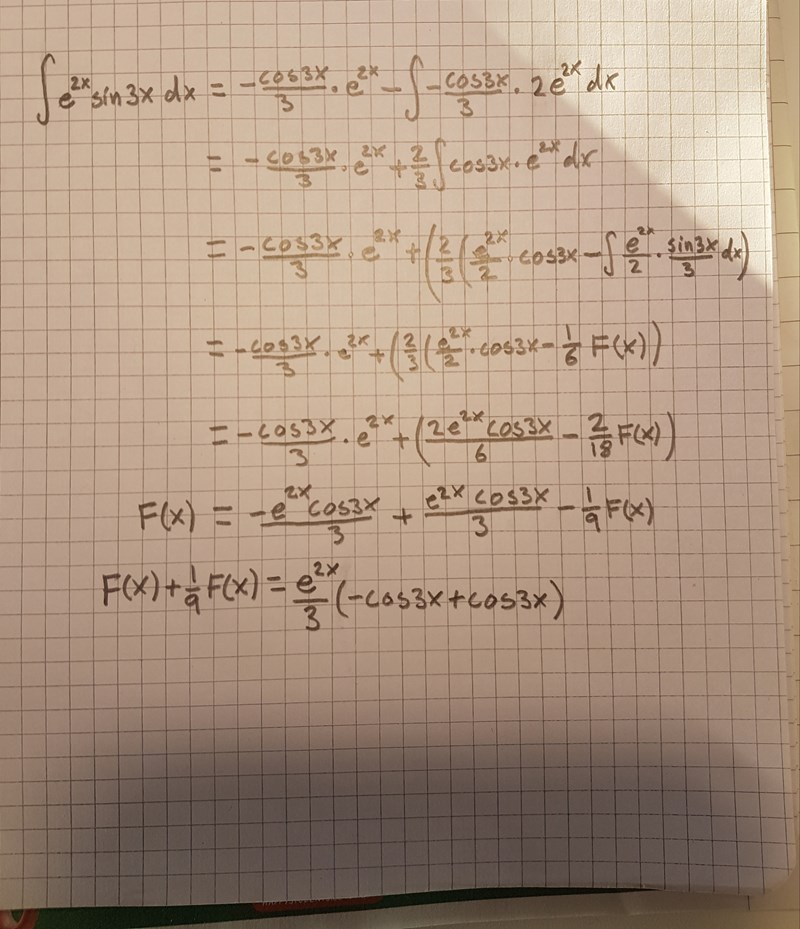 ∫ e^{2x} sin3x dx = -\frac{cos3x}{3} · e^{2x} - ∫ -\frac{cos3x}{3} · 2e^{2x} dx
= -\frac{cos3x}{3} · e^{2x} + \frac{2}{3} ∫ cos3x · e^{2x} dx
= -\frac{cos3x}{3} · e^{2x} + (\frac{2}{3} (\frac{e^{2x}}{2} · cos3x - ∫ \frac{e^{2x}}{2} · \frac{sin3x}{3} dx)
= -\frac{cos3x}{3} · e^{2x} + (\frac{2}{3} (\frac{e^{2x}}{2} · cos3x - \frac{1}{6} F(x)))
= -\frac{cos3x}{3} · e^{2x} + (\frac{2e^{2x} cos3x}{6} - \frac{2}{18} F(x))
F(x) = \frac{-e^{2x} cos3x}{3} + \frac{e^{2x} cos3x}{3} - \frac{1}{9} F(x)
F(x) + \frac{1}{9} F(x) = \frac{e^{2x}}{3} (-cos3x + cos3x)